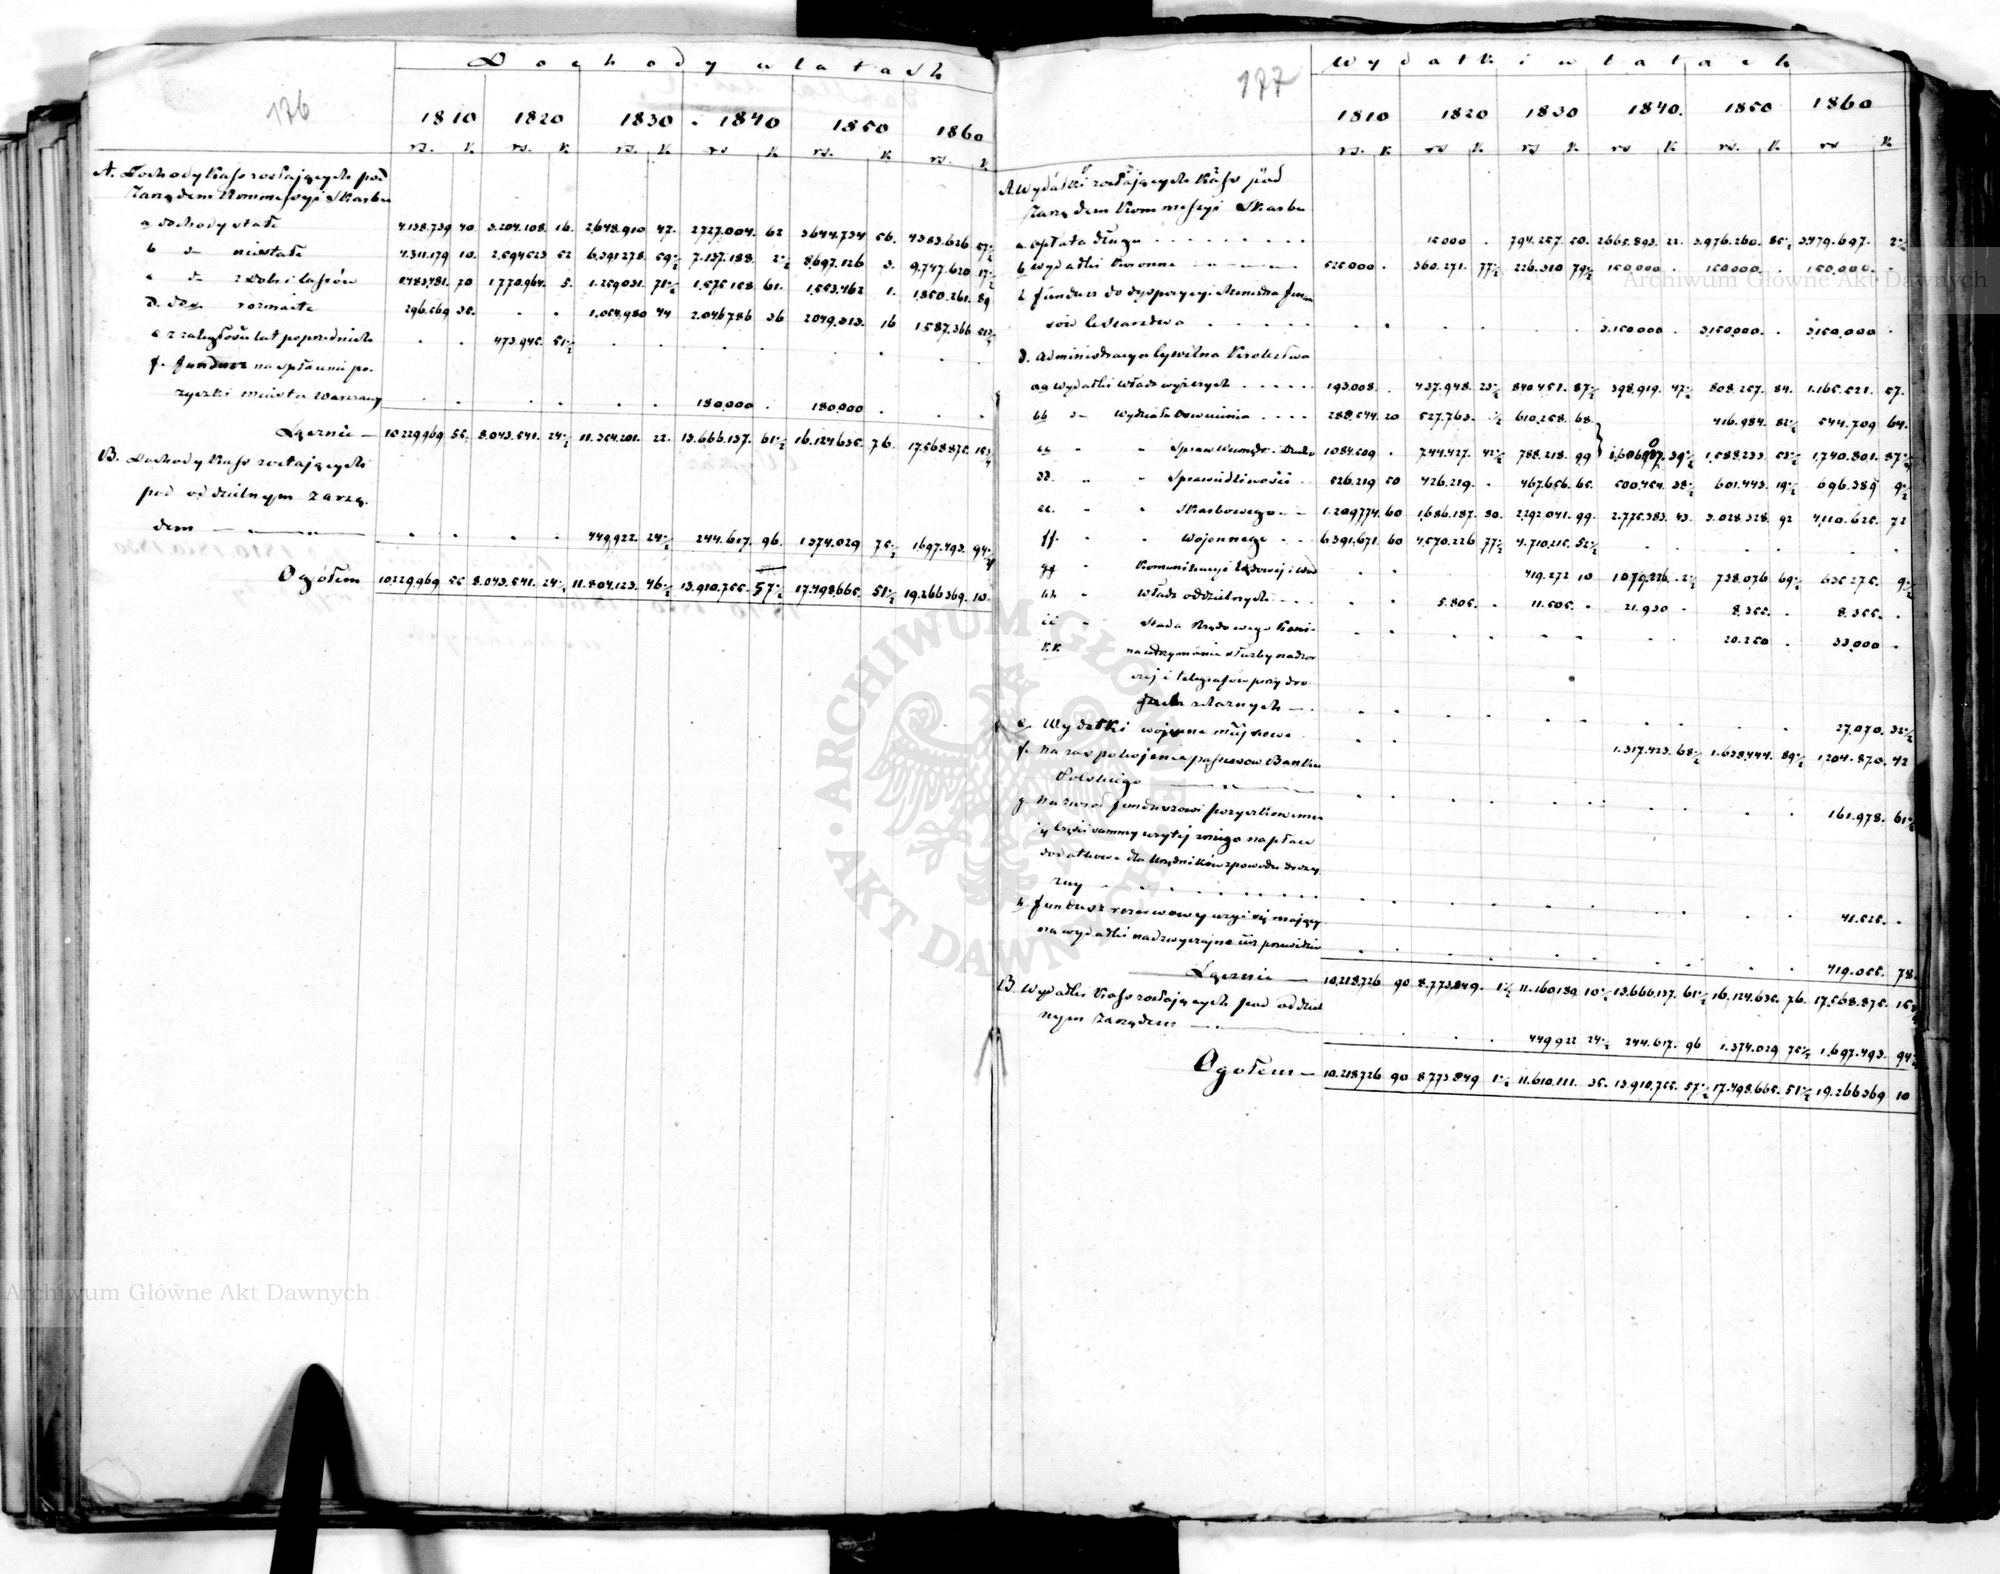 176
Dochody w latach
1810 1820 1830 1840 1850 1860
rs. k. rs. k. rs. k. rs k rs. k rs. k
A. Dochody Kass zostających pod
Zarządem Kommissyi Skarbu
a dochody stałe 4.138.739 40. 3.204.108. 16. 2,648.910 47. 2727.004. 62 3644.734 56. 4383.626 57½
b do niestałe 4.311.179 10. 2.594523 52 6.391278. 59½ 7.137.188. 2½ 8,697.126 3. 9,747.620 17½
c do z Dobr i lasów 1483,481. 70 1.770.964. 5. 1.259031. 71½ 1,575158 61. 1,553.462 1. 1,850.261. 89
d. do rozmaite 296.569 35. . . 1,054.980 44 2.046786 36 2049.313. 16 1.587.366 51¾
e z zaległości lat poprzednich . . 473.945. 51½ . . . . . .
f. Fundusz na spłacenie po-
życzki miasta Warszawy . . . . . . 180,000 . 180,000 . . .
Łącznie — 10.229,969 55. 8.043.541. 24½ 11.354.201. 22. 13.666.137. 61½ 16.124636. 76. 17.568.875. 15¾
B. Dochody Kass zostających
pod oddzielnym Zarzą-
dem . . . . 449,922. 24½ 244.617. 96. 1.374.029 75½ 1697.493. 94¼
Ogółem 10.229,969 55 8.043.541. 24½ 11.804.123. 46½ 13.910.755. 57½ 17.498.665. 51½ 19.266.369. 10.
177
Wydatki w latach
1810 1820 1830 1840. 1850 1860
rs. k rs k rs k rs k rs. k rs k
A. Wydatki zostających Kass pod
Zarządem Kommissyi Skarbu
a. opłata długu . . . 15000 . 794.257. 50. 2665.893. 22. 3.976.260. 85½ 3.479.697. 2½
b wydatki Koronne 525.000 . 360.271. 77½ 226.310 79½ 150,000 . 150,000. . 150,000. .
c Fundusz do dyspozycyi Ministra Finan-
sów Cesarstwa . . . . . . 3.150000 . 3,150,000. . 3,150,000 .
d. Administracya Cywilna Królestwa
aa wydatki Władz wyższych 193.008. . 437.948. 23½ 840.451. 87½ 398.919. 47½ 808.257. 84. 1.165.521. 57.
bb do Wydziału Oswiecenia 288.544 20 527.763. ½ 610.258. 68 416.984. 82½ 544.709 64.
cc " " Spraw Wewnętr. i Duchow 1084.509 . 744.427. 42½ 788.218. 99 1,606,987. 39½ 1,588233 53½ 1,740.801. 87½
dd. " " Sprawiedliwości 526.219 50 426.219. . 467.656. 65. 500.454. 38½ 601.443. 19½ 696.389 9½
ee. " " Skarbowego 1.209774. 60 1,686.187. 80. 2,292.041. 99. 2.775.383. 43. 3.028.328. 92 4,110.625. 72
ff. " " Wojennego 6391,671. 60 4,570.226 77½ 4.710,215. 52½ . . .
gg " Komunikacyi Lądowej i Wod 419.272 10 1.079,226. 2½ 738.076 69½ 635.275. 9½
hh " Władz oddzielnych . . 5.805. . 11.505. . 21.930 . 8.355. . 8.355. .
ii " Stada Rządowego Koni . . . . . . . . 20.250 . 33,000 .
kk na utrzymanie służby nadzor
czej i telegrafów przy dro-
gach żelaznych . . . . . . 27.070. 32½
e Wydatki wojenne miejscowe . . 1.317.423. 68½ 1.638,444. 89½ 1204.870. 42
f. Na zaspokojenie passiwów Banku
Polskiego . . . . . . 161.978. 61½
g Na zwrot funduszowi pożyczkowemu
części summy użytej z niego na płace
dodatkowe dla Urzędników z powodu droży-
zny . . . . . . 41.525. .
h. Fundusz rezerwowy użyć się mający
na wydatki nadzwyczajne . . . . . . 419.055. 78
Łącznie — 10.218,726 90 8.773.849. 1½ 11.160.189 10½ 13,666.137. 61½ 16,124.636. 76. 17,568.875. 15¾
B. Wydatki Kass zostających pod oddziel
nym Zarządem . . . . 449922 24½ 244.617. 96 1.374.029 75½ 1.697.493. 94¼
Ogółem — 10.218726 90 8.773.849 1½ 11.610.111. 35. 13.910,755. 57½ 17.498.665. 51½ 19.266369 10
ARCHIWUM GŁÓWNE AKT DAWNYCH
Archiwum Główne Akt Dawnych
Archiwum Główne Akt Dawnych